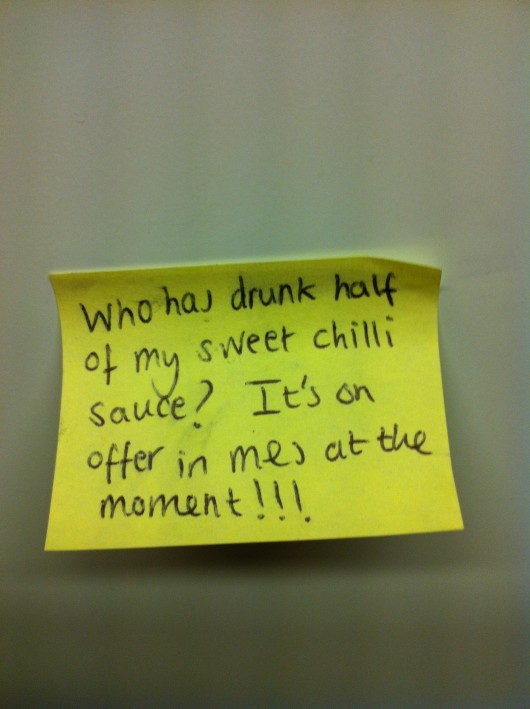 Who has drunk half
of my sweet chilli
sauce? It's on
offer in mes at the
moment!!!